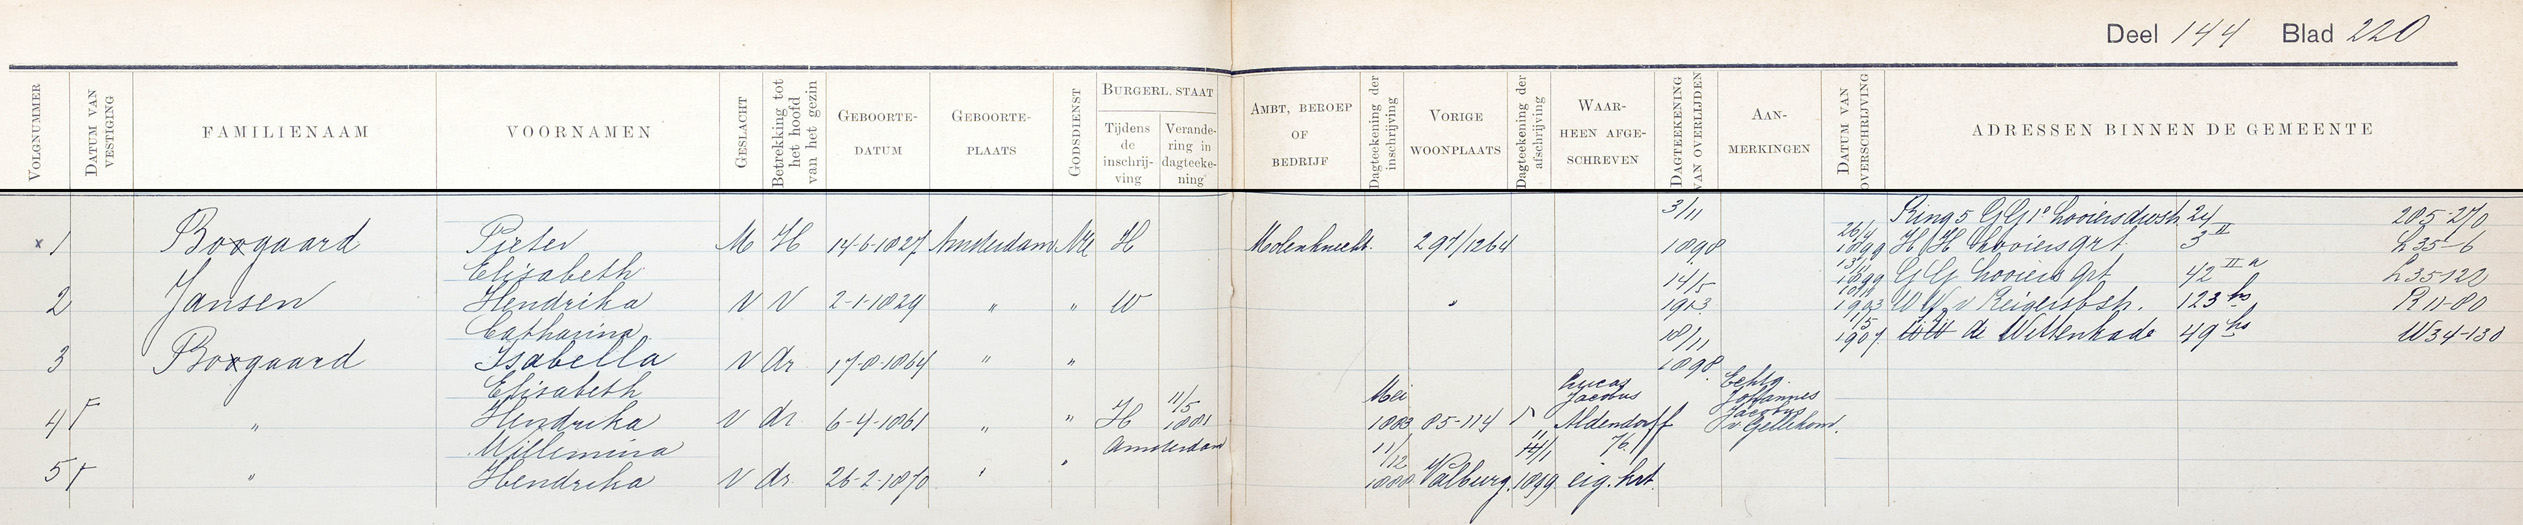 Deel 144 Blad 220
VOLGNUMMER
DATUM VAN VESTIGING
FAMILIENAAM
VOORNAMEN
GESLACHT
Betrekking tot het hoofd van het gezin
GEBOORTE-DATUM
GEBOORTE-PLAATS
GODSDIENST
BURGERL. STAAT
Tijdens de inschrij-ving
Verande-ring in dagteeke-ning
AMBT, BEROEP OF BEDRIJF
Dagteekening der inschrijving
VORIGE WOONPLAATS
Dagteekening der afschrijving
WAAR-HEEN AFGE-SCHREVEN
DAGTEEKENING VAN OVERLIJDEN
AAN-MERKINGEN
DATUM VAN OVERSCHRIJVING
ADRESSEN BINNEN DE GEMEENTE
3/11 Ring 5 GG 1e Looiersdwsh. 24 205-270
x 1 Boogaard Pieter M H 14-6-1827 Amsterdam NH H Molenknecht. 297/1264 1898 26/4 1899 HH Looiersgrt. 3 II L 35-6
Elisabeth 14/5 1899 GG Looiers grt 42 II a L 35-122
2 Jansen Hendrika V V 2-1-1829 " " W " 1913 1903 WW v Reigersbsh. 123 hs R 11-80
Catharina 18/11 1/5 1907 de Wittenkade 49 hs W 34-130
3 Boogaard Isabella V dr 17-8-1864 " " 1898
Elisabeth Mei Lucas Jacobus Echtg. Johannes Jacobus
4 " Hendrika V dr. 6-4-1861 " " H 11/5 1881 1883 85-114 Aldendorff v Gellekom.
Willemina Amsterdam 11/12 76.
5 " Hendrika V dr. 26-2-1870 " " 1888 Valburg. 1899 eig. krt.